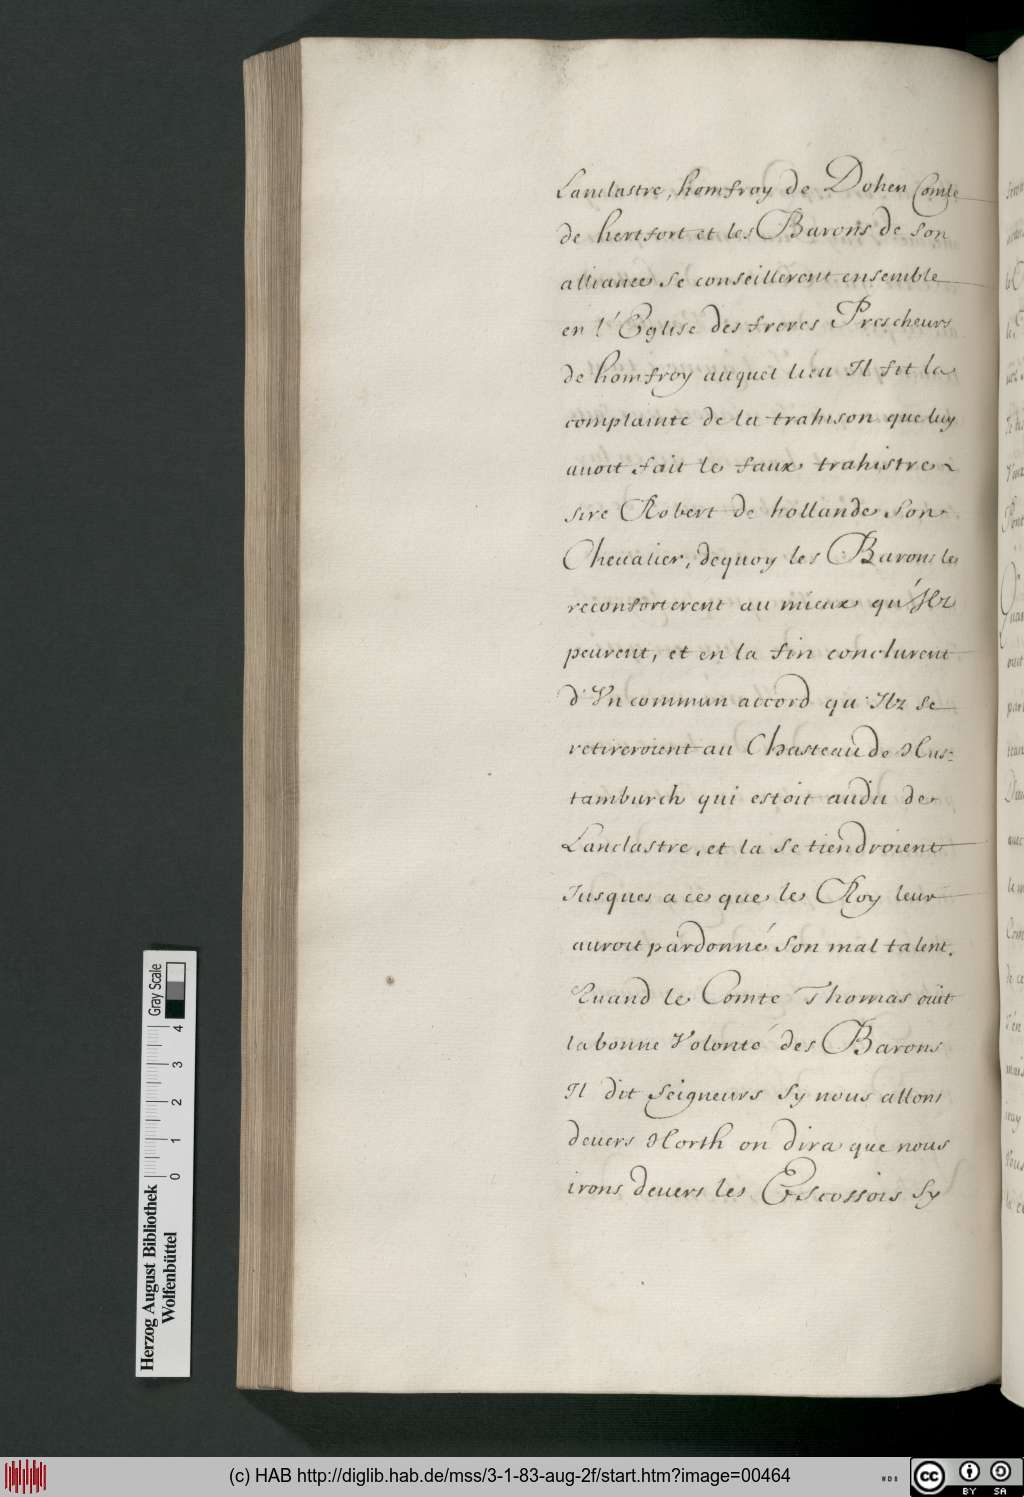 Lanclastre, homfroy de Dohen Comte
de hertfort et les Barons de son
alliance se conseillerent ensemble
en l'Eglise des freres Prescheurs
de homfroy auquel lieu Il fit la
complainte de la trahison que luy
auoit fait le faux trahistre
sire Robert de hollande son
Cheualier, dequoy les Barons le
reconforterent au mieux qu'Ilz
peurent, et en la fin conclurent
d'Vn commun accord qu'Ilz se
retireroient au Chasteau de Nus:
tamburch qui estoit audit de
Lanclastre, et la se tiendroient
Jusques a ce que le Roy leur
auroit pardonné son mal talent.
Quand le Comte Thomas oüit
la bonne Volonté des Barons
Il dit seigneurs sy nous allons
deuers North on dira que nous
irons deuers les Escossois sy
Herzog August Bibliothek
Wolfenbüttel
0 1 2 3 4
Gray Scale
(c) HAB http://diglib.hab.de/mss/3-1-83-aug-2f/start.htm?image=00464
WDB
cc BY SA